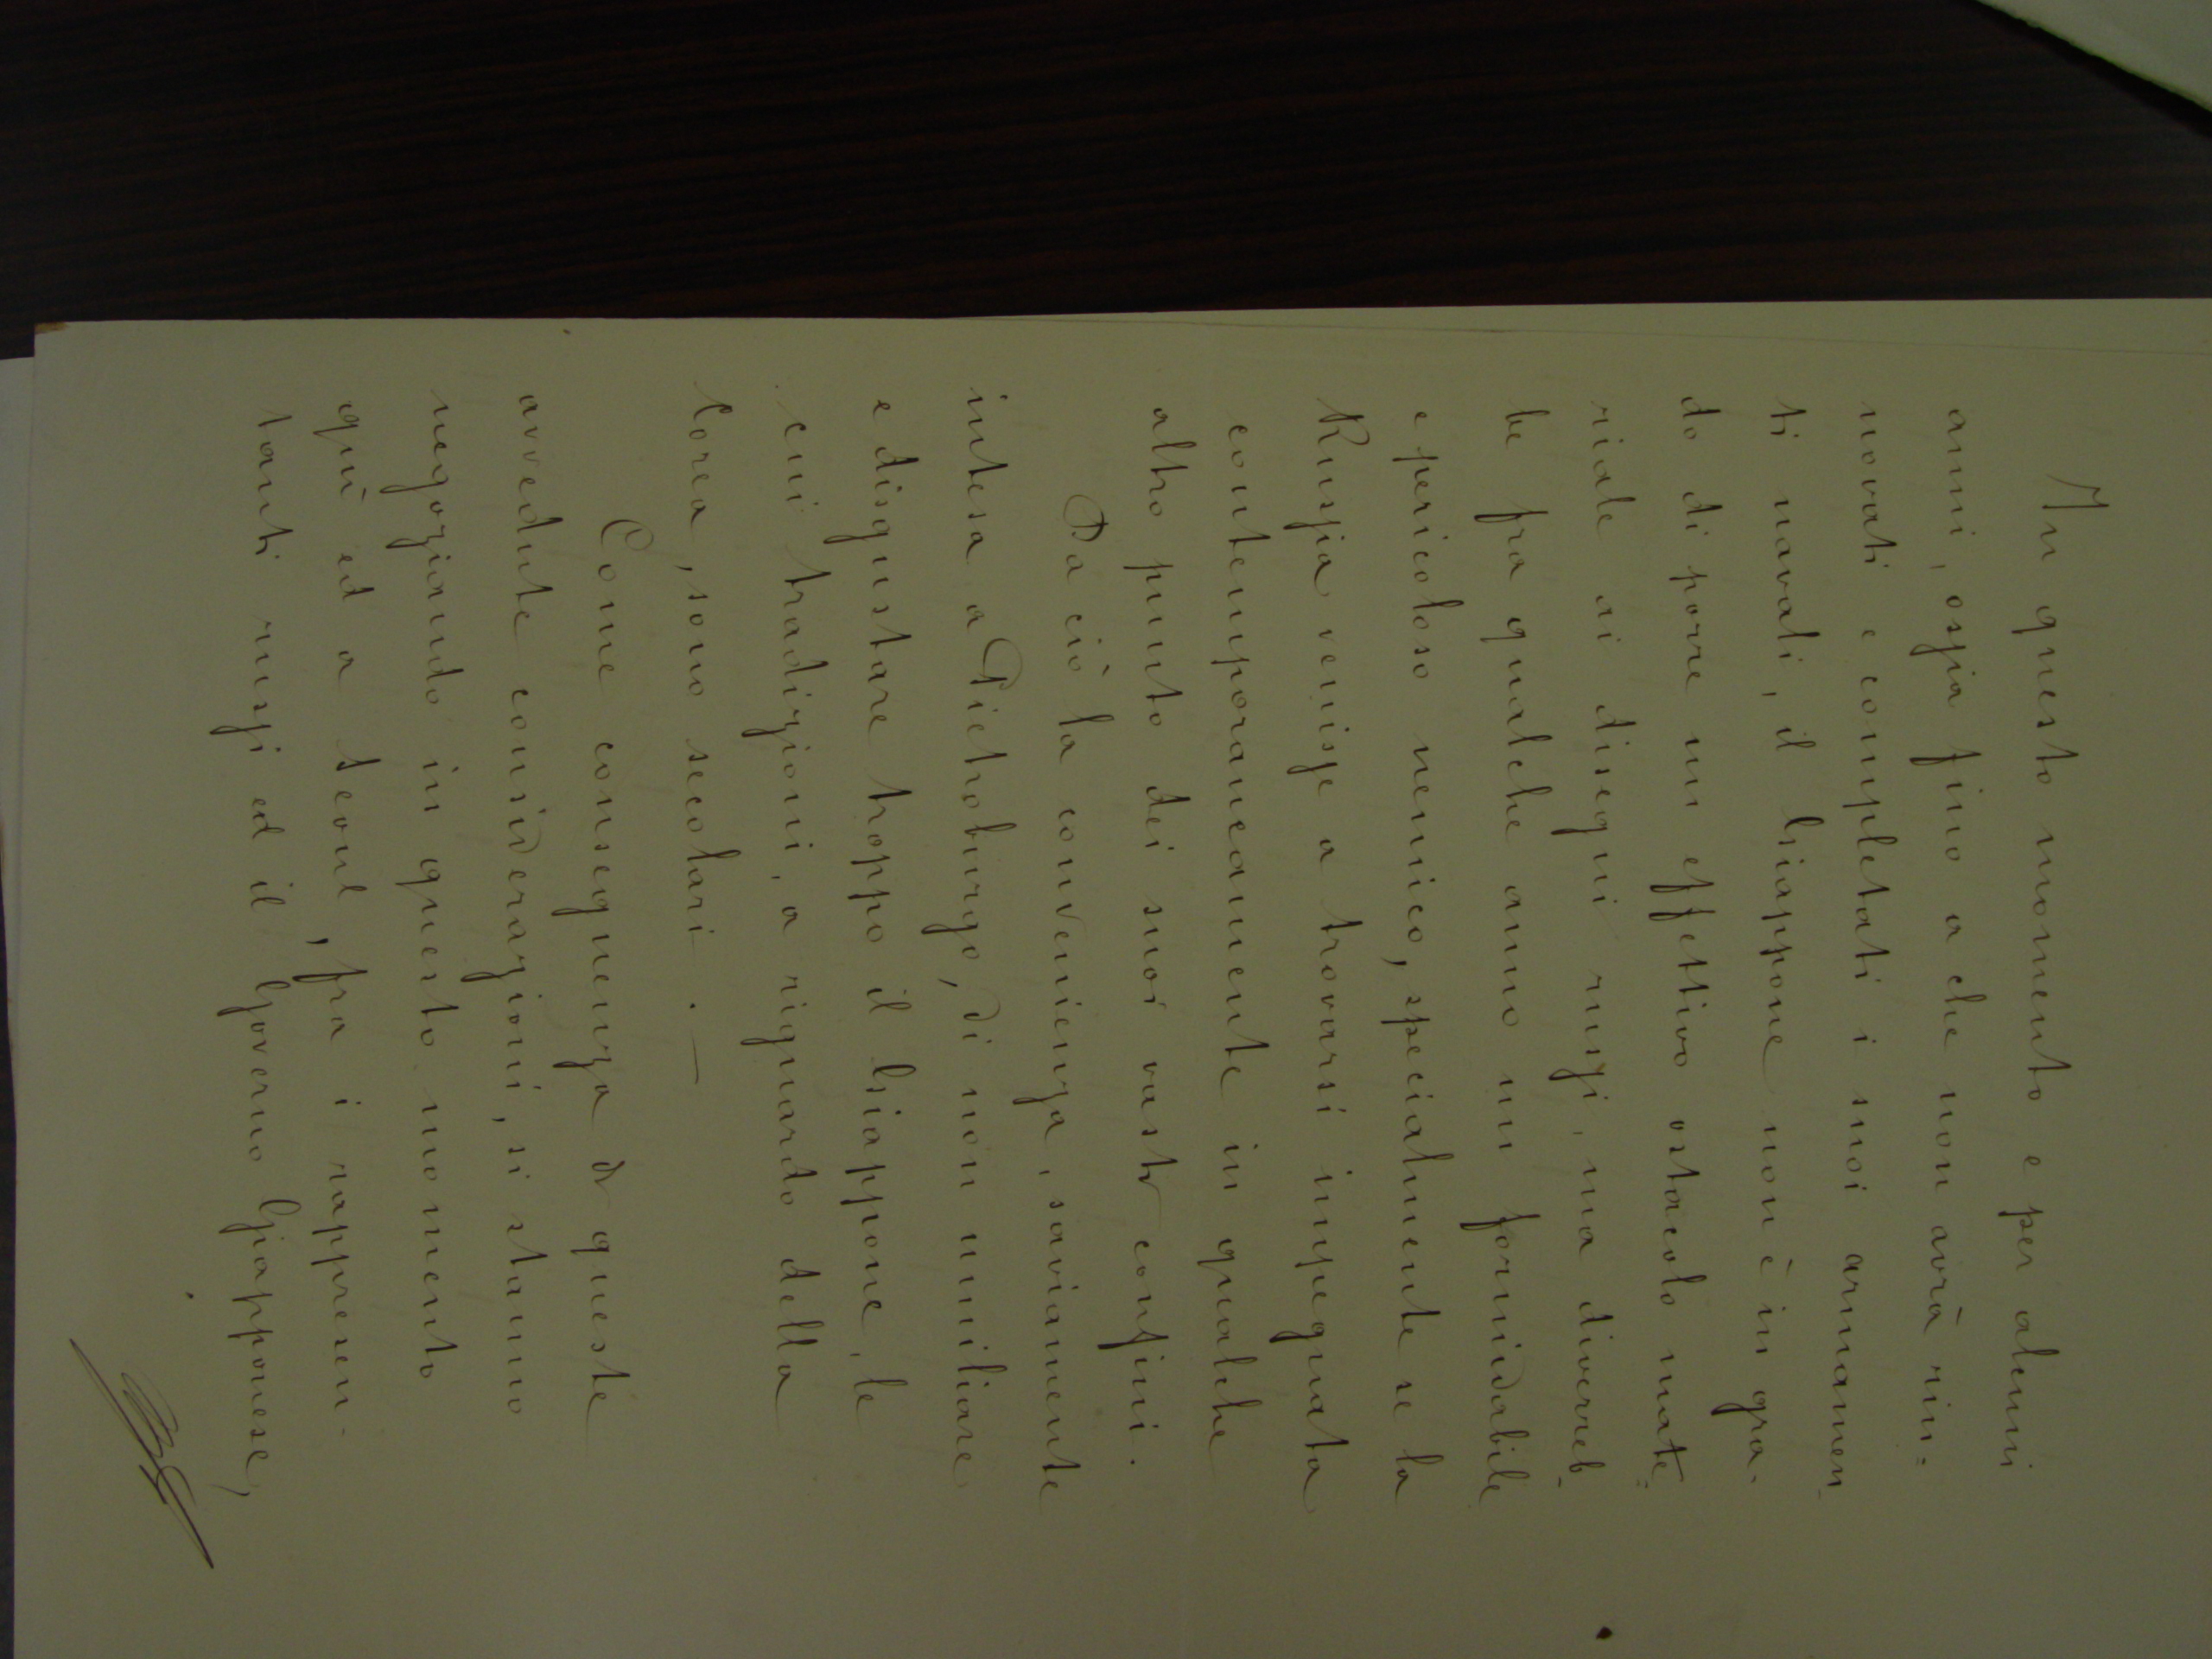 In questo momento e per alcuni
anni, ossia fino a che non avrà rin=
novati e completati i suoi armamen
ti navali, il Giappone non è in gra-
do di porre un effettivo ostacolo mate=
riale ai disegni russi, ma diverreb=
be fra qualche anno un formidabile
e pericoloso nemico, specialmente se la
Russia venisse a trovarsi impegnata
contemporaneamente in qualche
altro punto dei suoi vasti confini.
Da ciò la convenienza, saviamente
intesa a Pietroburgo, di non umiliare
e disgustare troppo il Giappone, le
cui tradizioni, a riguardo della
Corea, sono secolari. —
Come conseguenza di queste
avvedute considerazioni, si stanno
negoziando in questo momento
qui ed a Seoul, fra i rappresen-
tanti russi ed il Governo Giapponese,